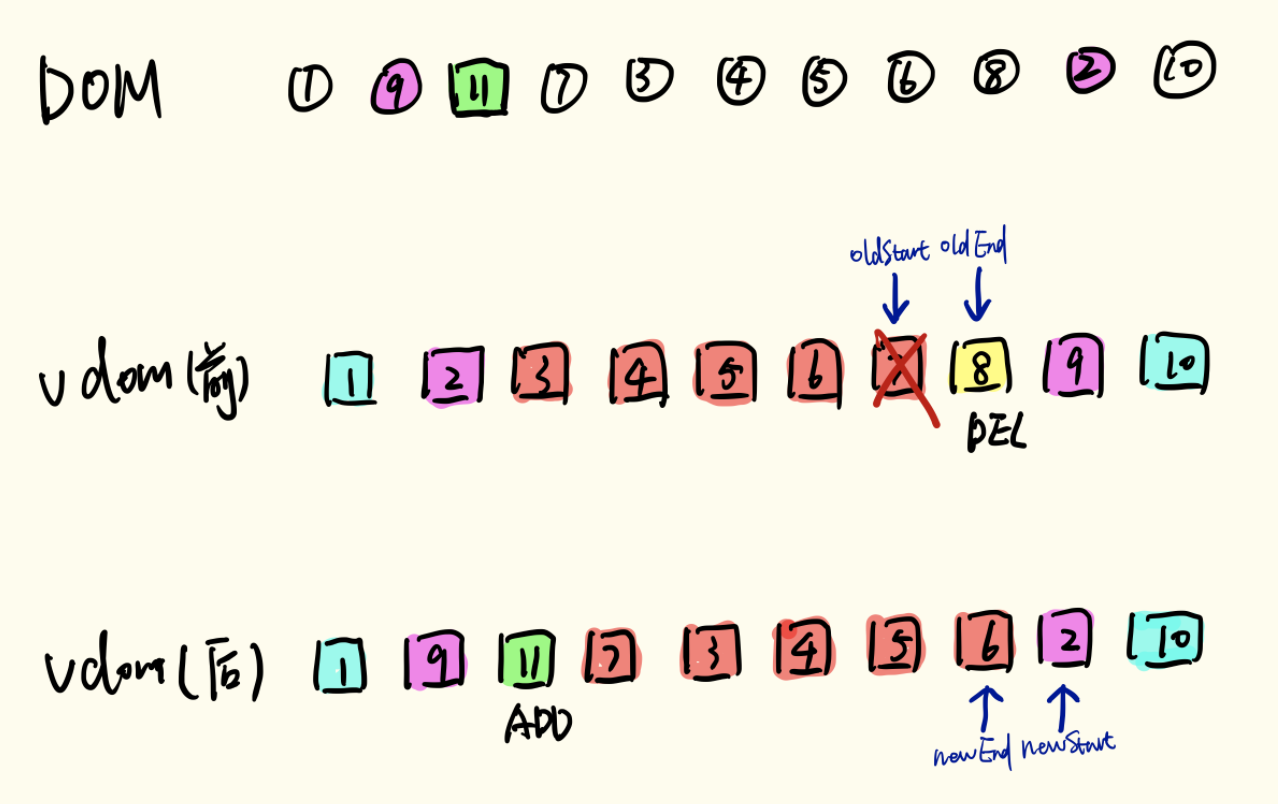 DOM ① ⑨ 11 ⑦ ③ ④ ⑤ ⑥ ⑧ ② ⑩
oldStart oldEnd
vdom(前) 1 2 3 4 5 6 7 8 9 10
DEL
vdom(后) 1 9 11 7 3 4 5 6 2 10
ADD
newEnd newStart